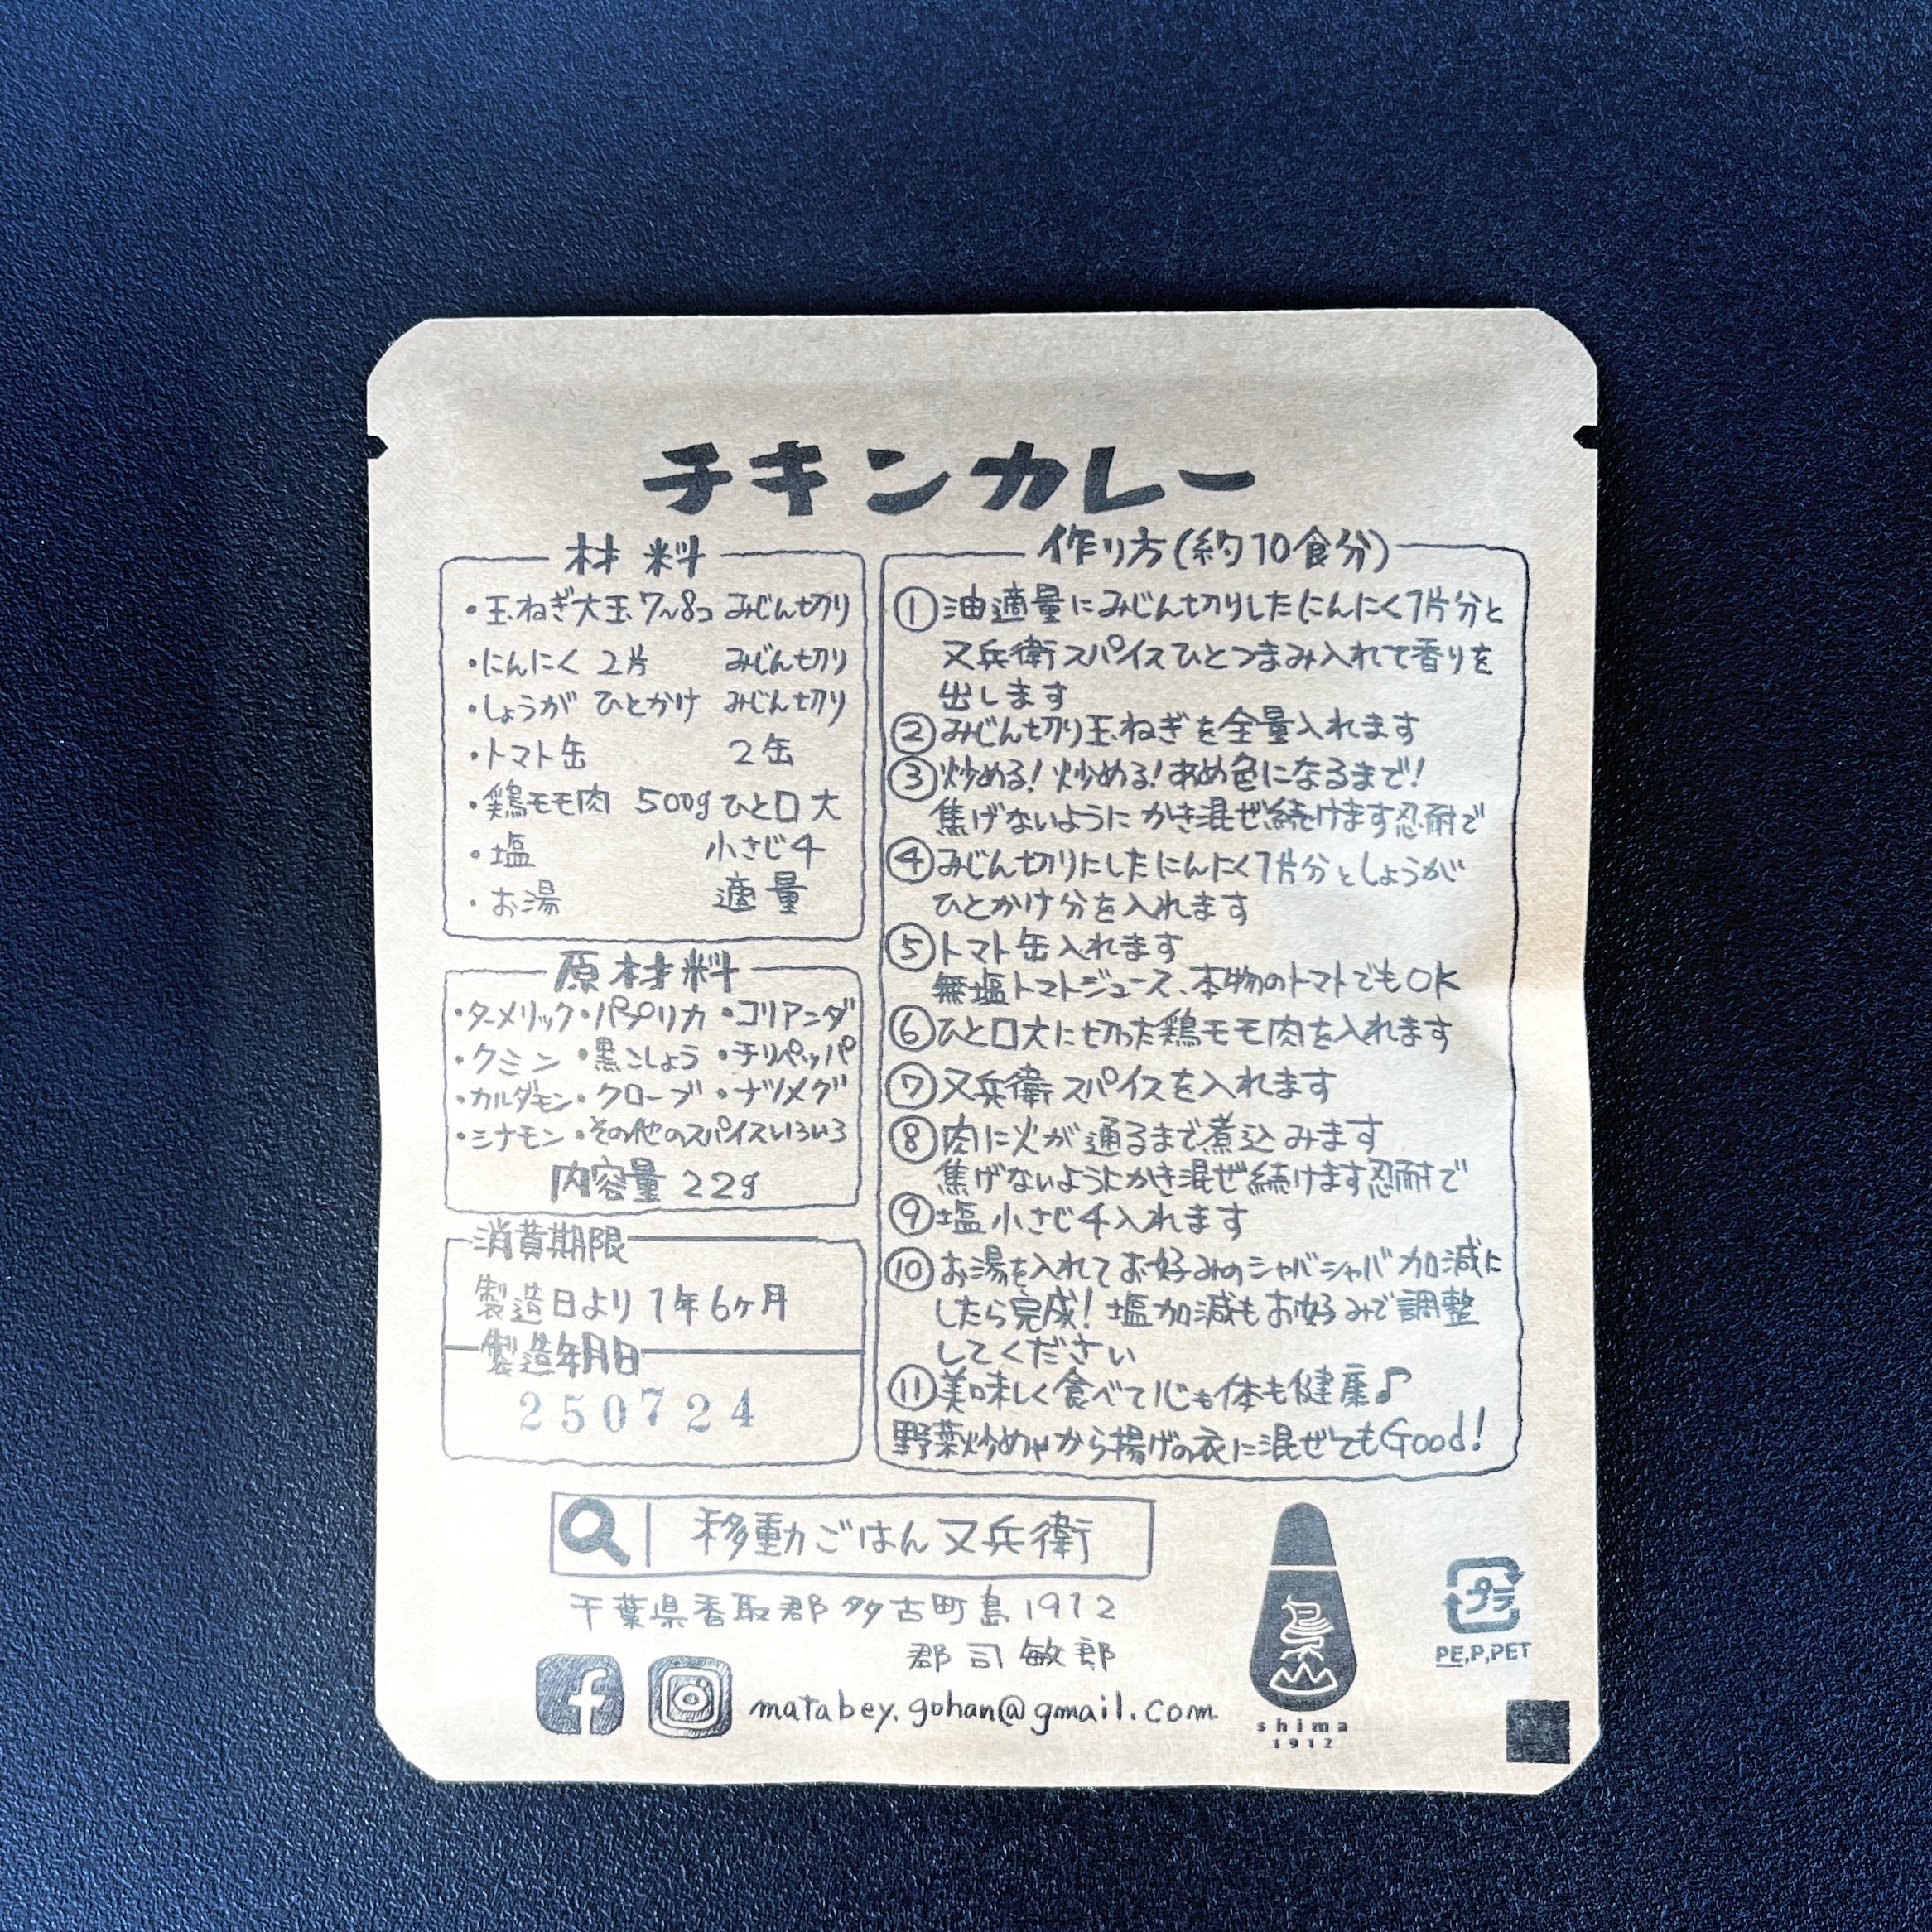 チキンカレー
材料
・玉ねぎ大玉 7〜8コ みじん切り
・にんにく 2片 みじん切り
・しょうが ひとかけ みじん切り
・トマト缶 2缶
・鶏モモ肉 500g ひと口大
・塩 小さじ4
・お湯 適量
原材料
・ターメリック・パプリカ・コリアンダ
・クミン・黒こしょう・チリペッパ
・カルダモン・クローブ・ナツメグ
・シナモン・その他のスパイスいろいろ
内容量 22g
消費期限
製造日より 1年6ヶ月
製造年月日
250724
作り方(約10食分)
①油適量にみじん切りしたにんにく1片分と
又兵衛スパイスひとつまみ入れて香りを
出します
②みじん切り玉ねぎを全量入れます
③炒める!炒める!あめ色になるまで!
焦げないように かき混ぜ続けます忍耐で
④みじん切りにしたにんにく1片分としょうが
ひとかけ分を入れます
⑤トマト缶入れます
無塩トマトジュース、本物のトマトでもOK
⑥ひと口大に切った鶏モモ肉を入れます
⑦又兵衛スパイスを入れます
⑧肉に火が通るまで煮込みます
焦げないようにかき混ぜ続けます忍耐で
⑨塩小さじ4入れます
⑩お湯を入れてお好みのシャバシャバ加減に
したら完成!塩加減もお好みで調整
してください
⑪美味しく食べて心も体も健康♪
野菜炒めやから揚げの衣に混ぜてもGood!
移動ごはん又兵衛
千葉県香取郡多古町島1912
郡司敏郎
matabey.gohan@gmail.com
shima
1912
プラ
PE,P,PET